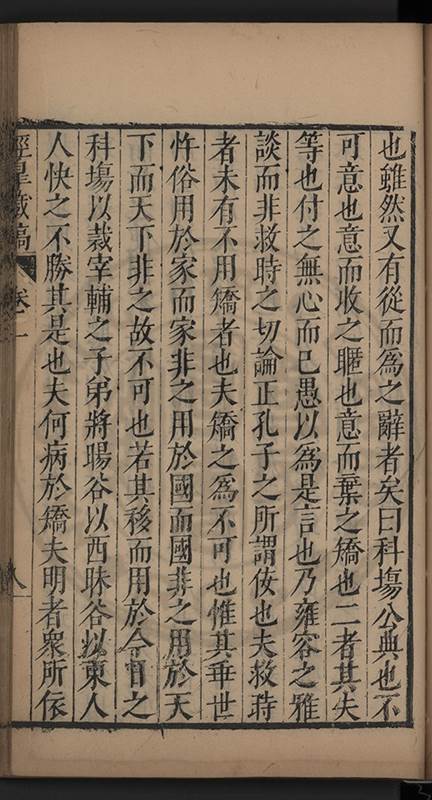 也雖然又有從而為之辭者矣曰科塲公典也不
可意也意而收之暱也意而棄之矯也二者其失
等也付之無心而已愚以為是言也乃雍容之雅
談而非救時之切論正孔子之所謂佞也夫救時
者未有不用矯者也夫矯之為不可也惟其垂世
忤俗用於家而家非之用於國而國非之用於天
下而天下非之故不可也若其移而用於今日之
科塲以裁宰輔之子弟將暘谷以西昧谷以東人
人快之不勝其是也夫何病於矯夫明者衆所依
涇臯藏稿 卷一 八